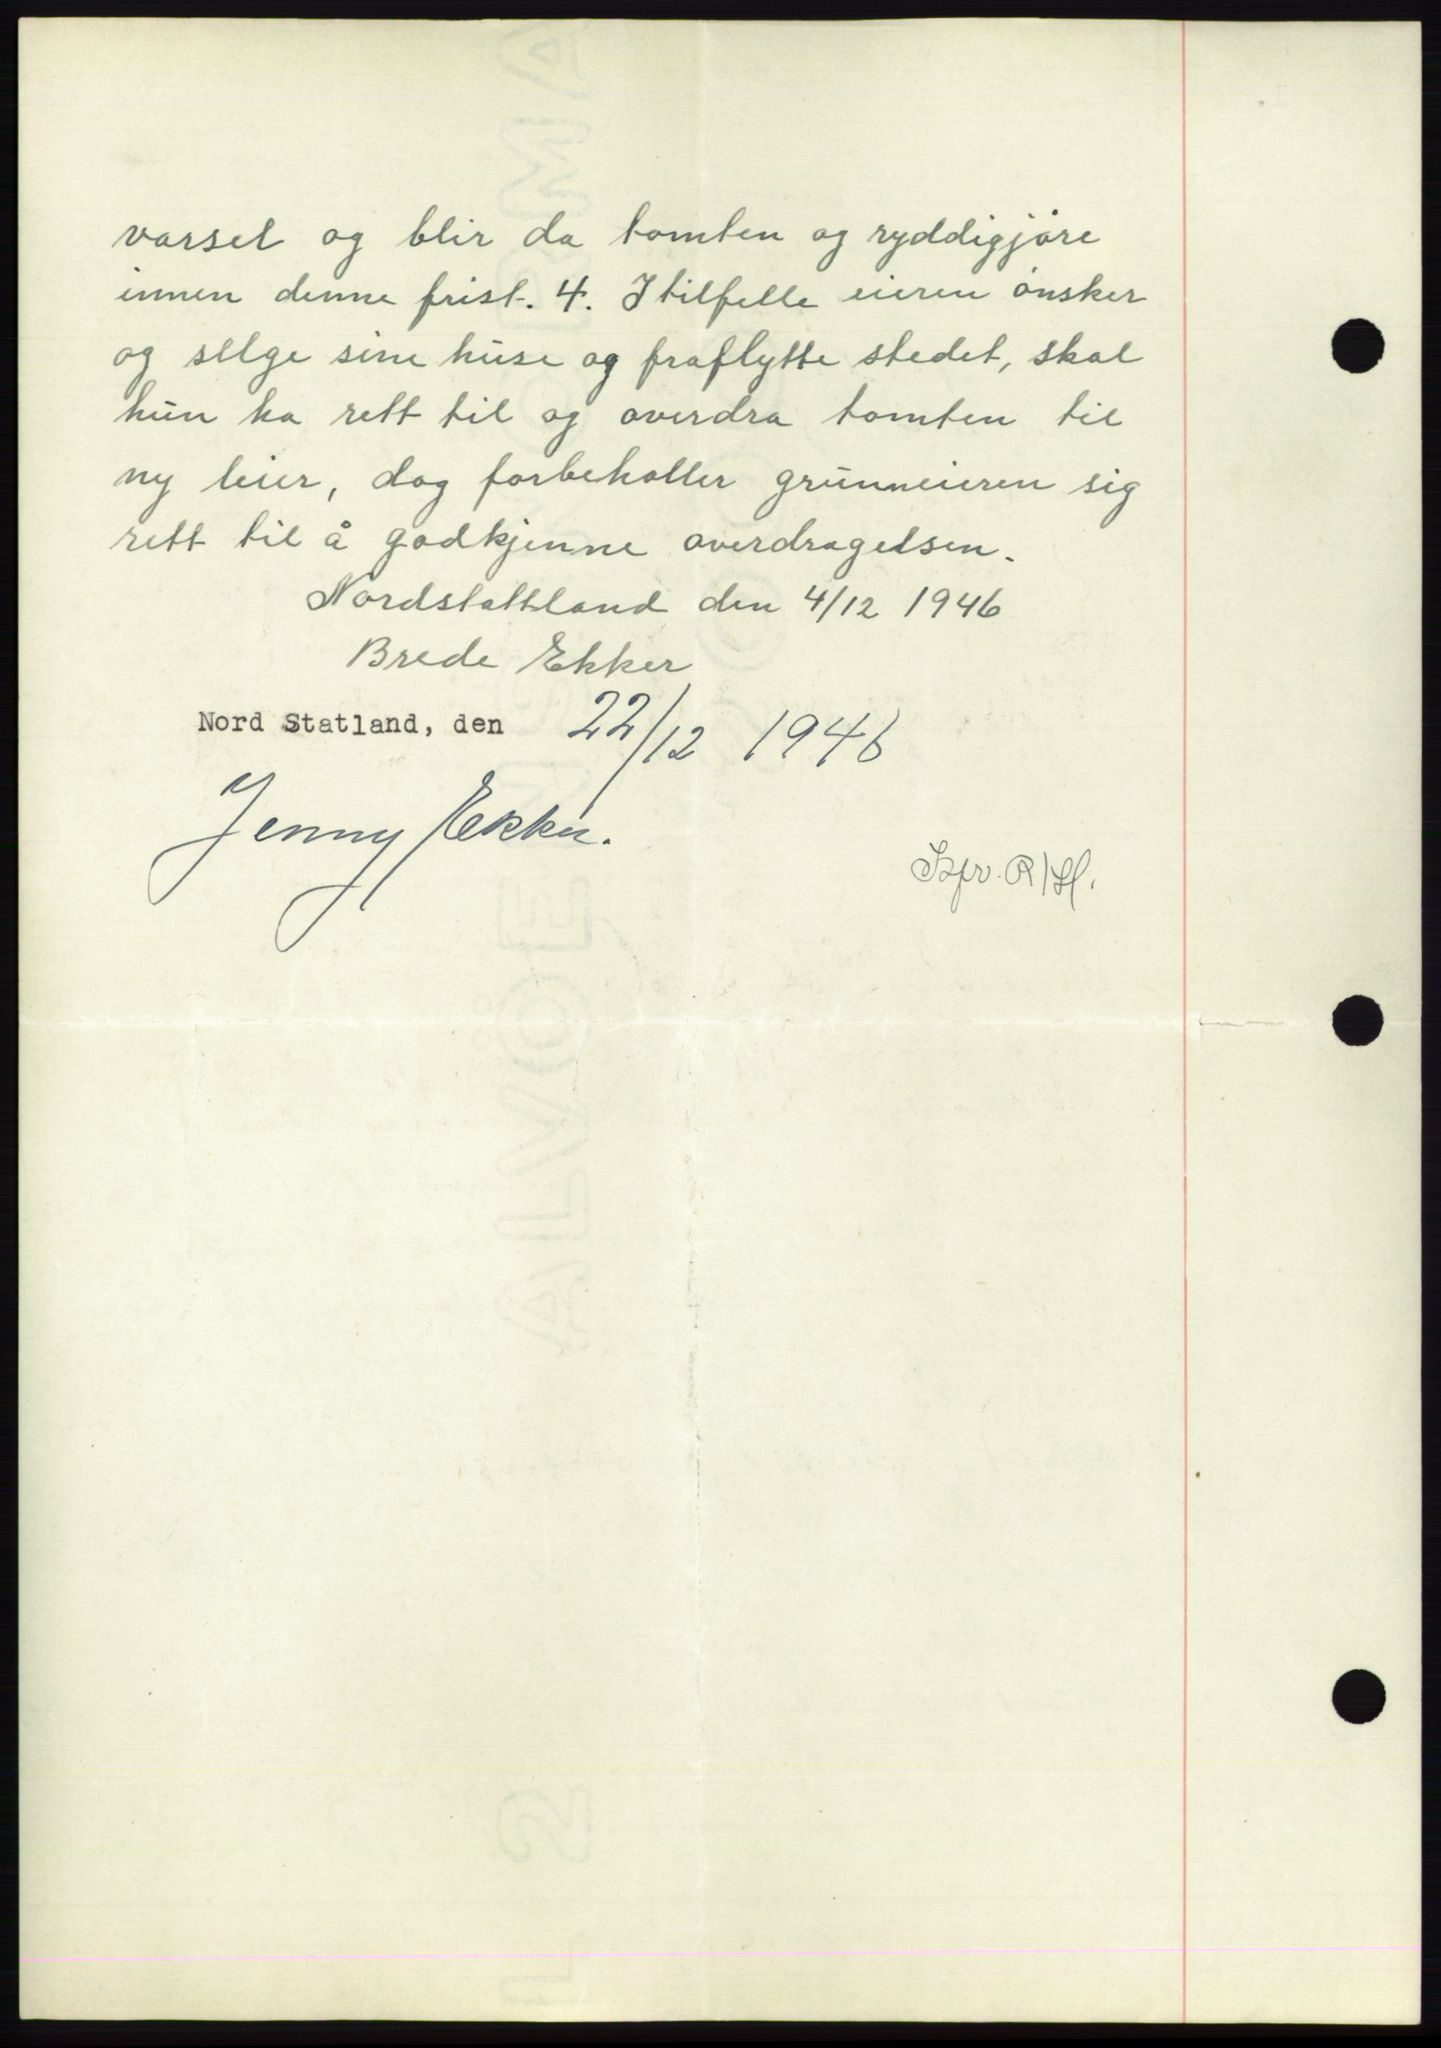 varsel og blir da tomten og ryddigjøre
innen denne frist. 4. I tilfelle eieren ønsker
og selge sine huse og fraflytte stedet, skal
hun ha rett til og overdra tomten til
ny leier, dog forbeholler grunneieren sig
rett til å godkjenne overdragelsen.
Nordstattland den 4/12 1946
Brede Ekker
Nord Statland, den 22/12 1946
Jenny Ekker.